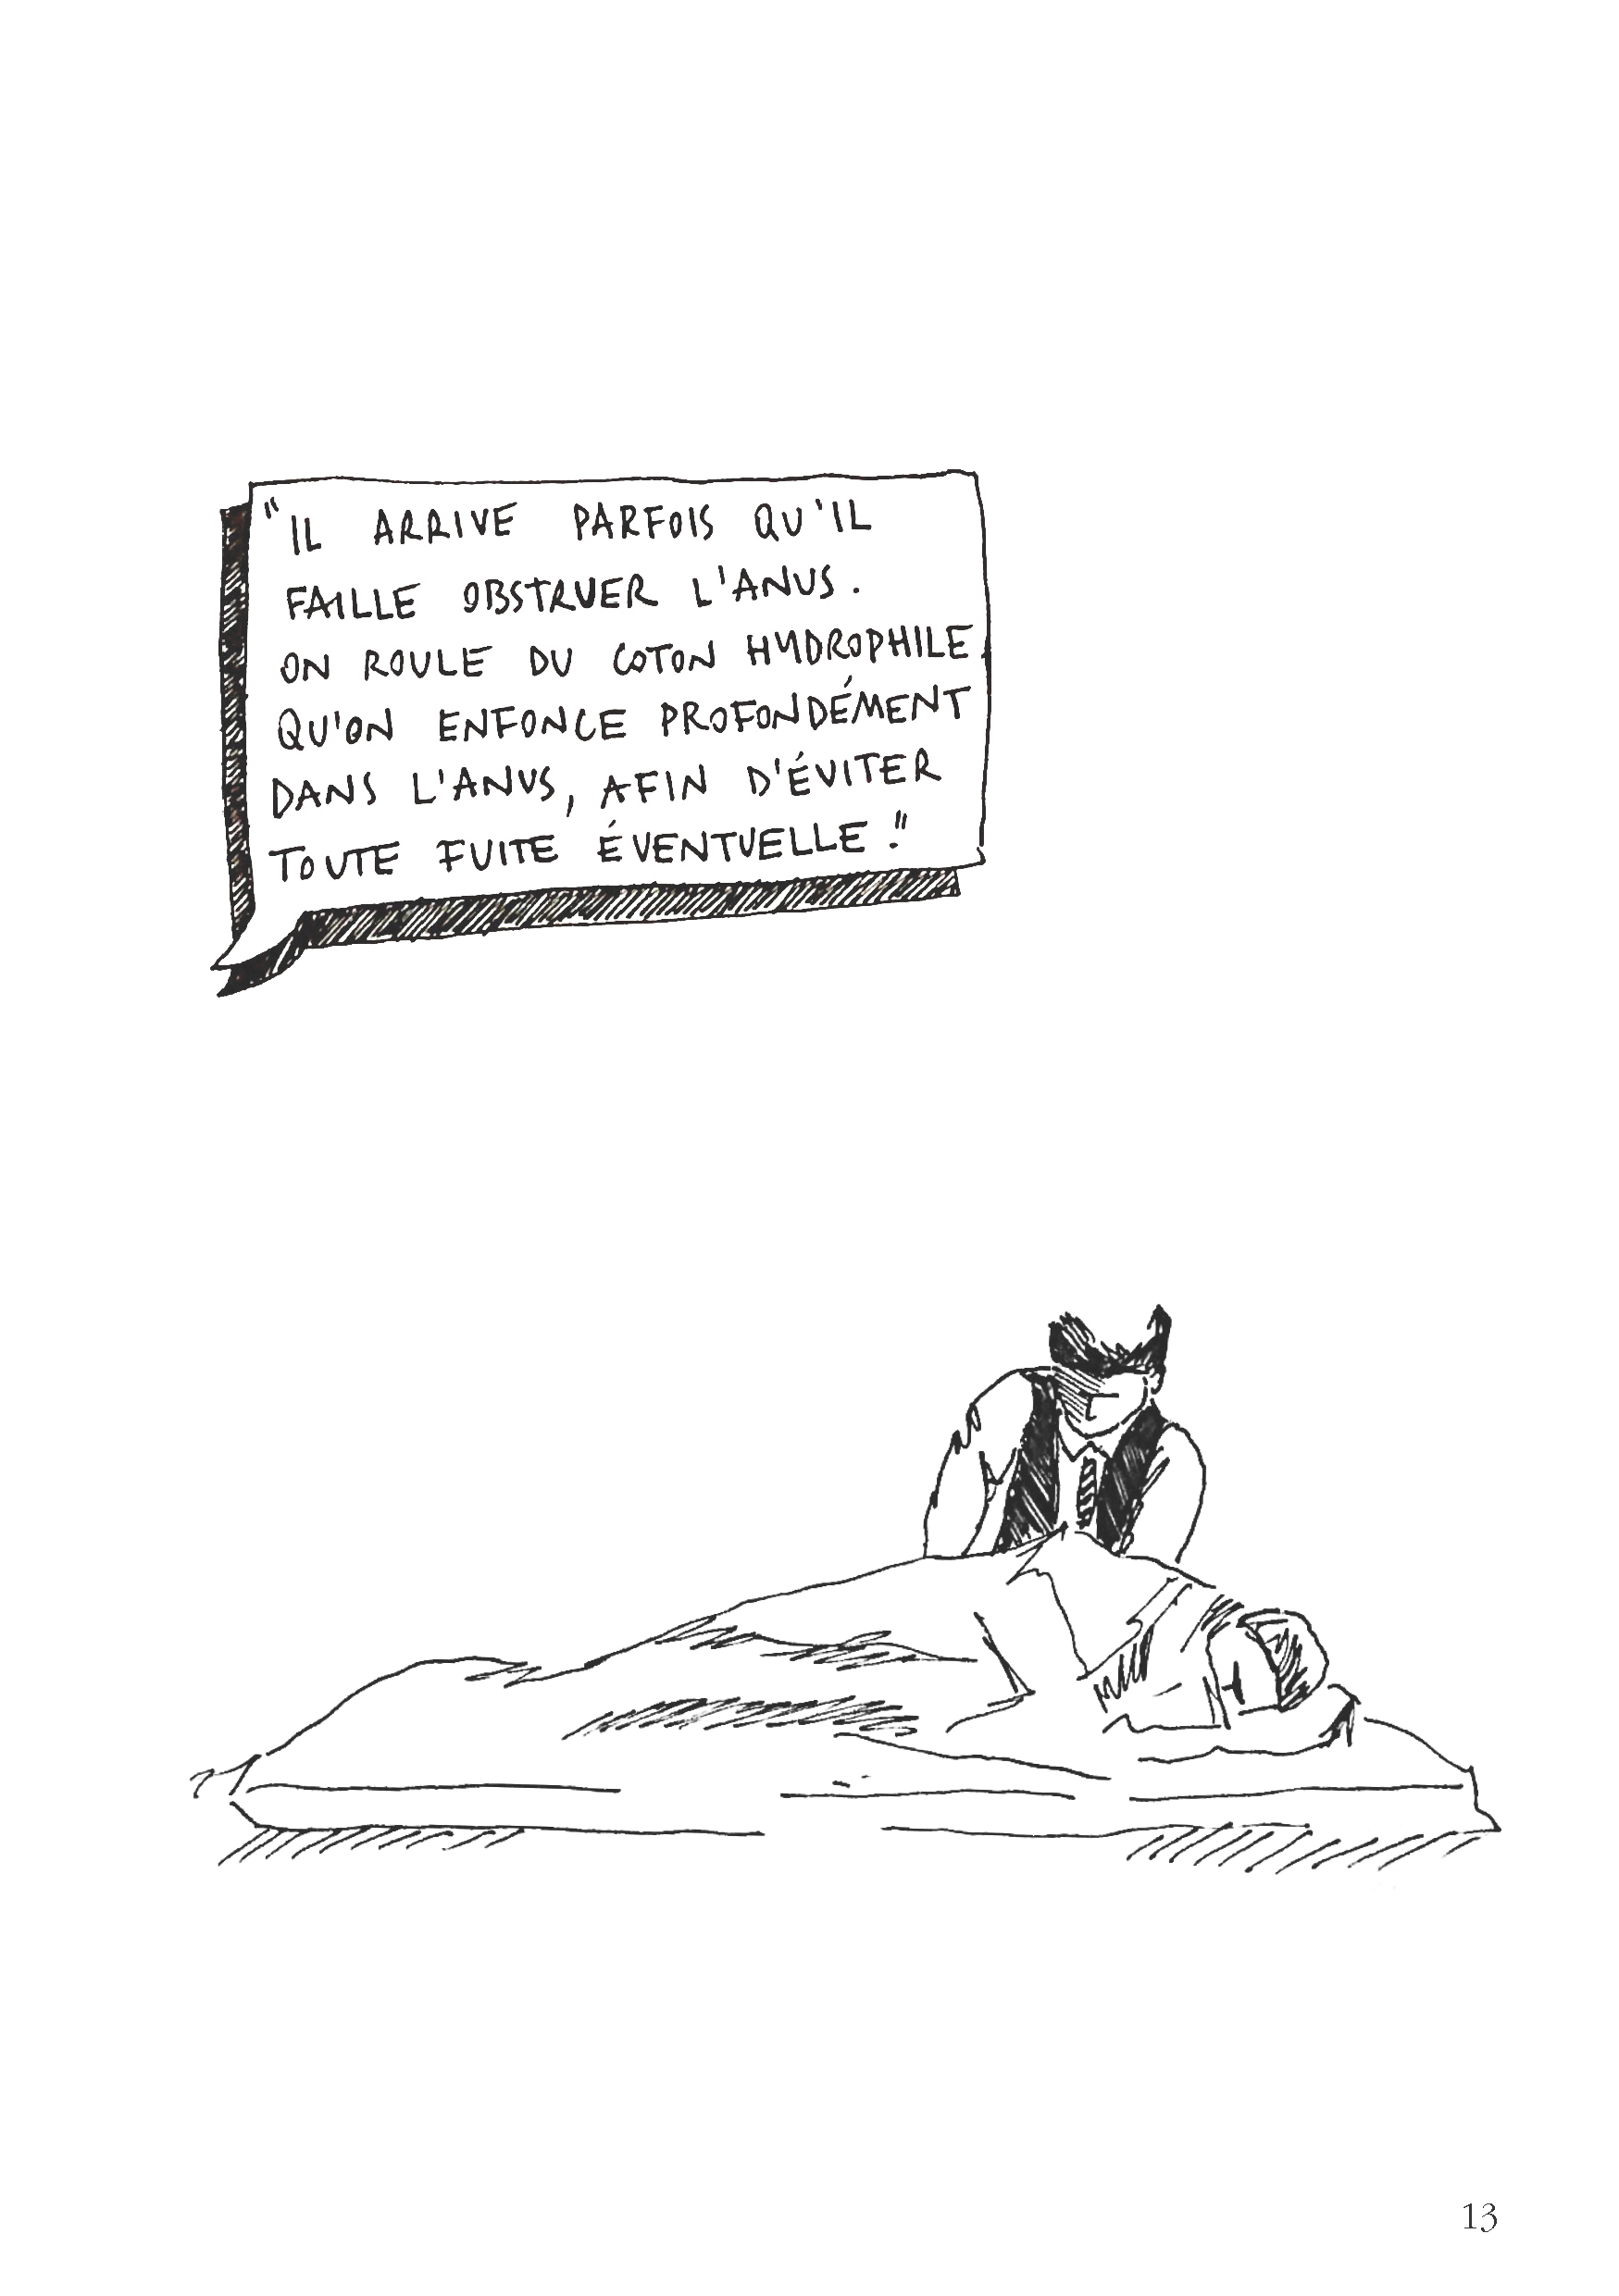 "IL ARRIVE PARFOIS QU'IL
FAILLE OBSTRUER L'ANUS.
ON ROULE DU COTON HYDROPHILE
QU'ON ENFONCE PROFONDÉMENT
DANS L'ANUS, AFIN D'ÉVITER
TOUTE FUITE ÉVENTUELLE."
13